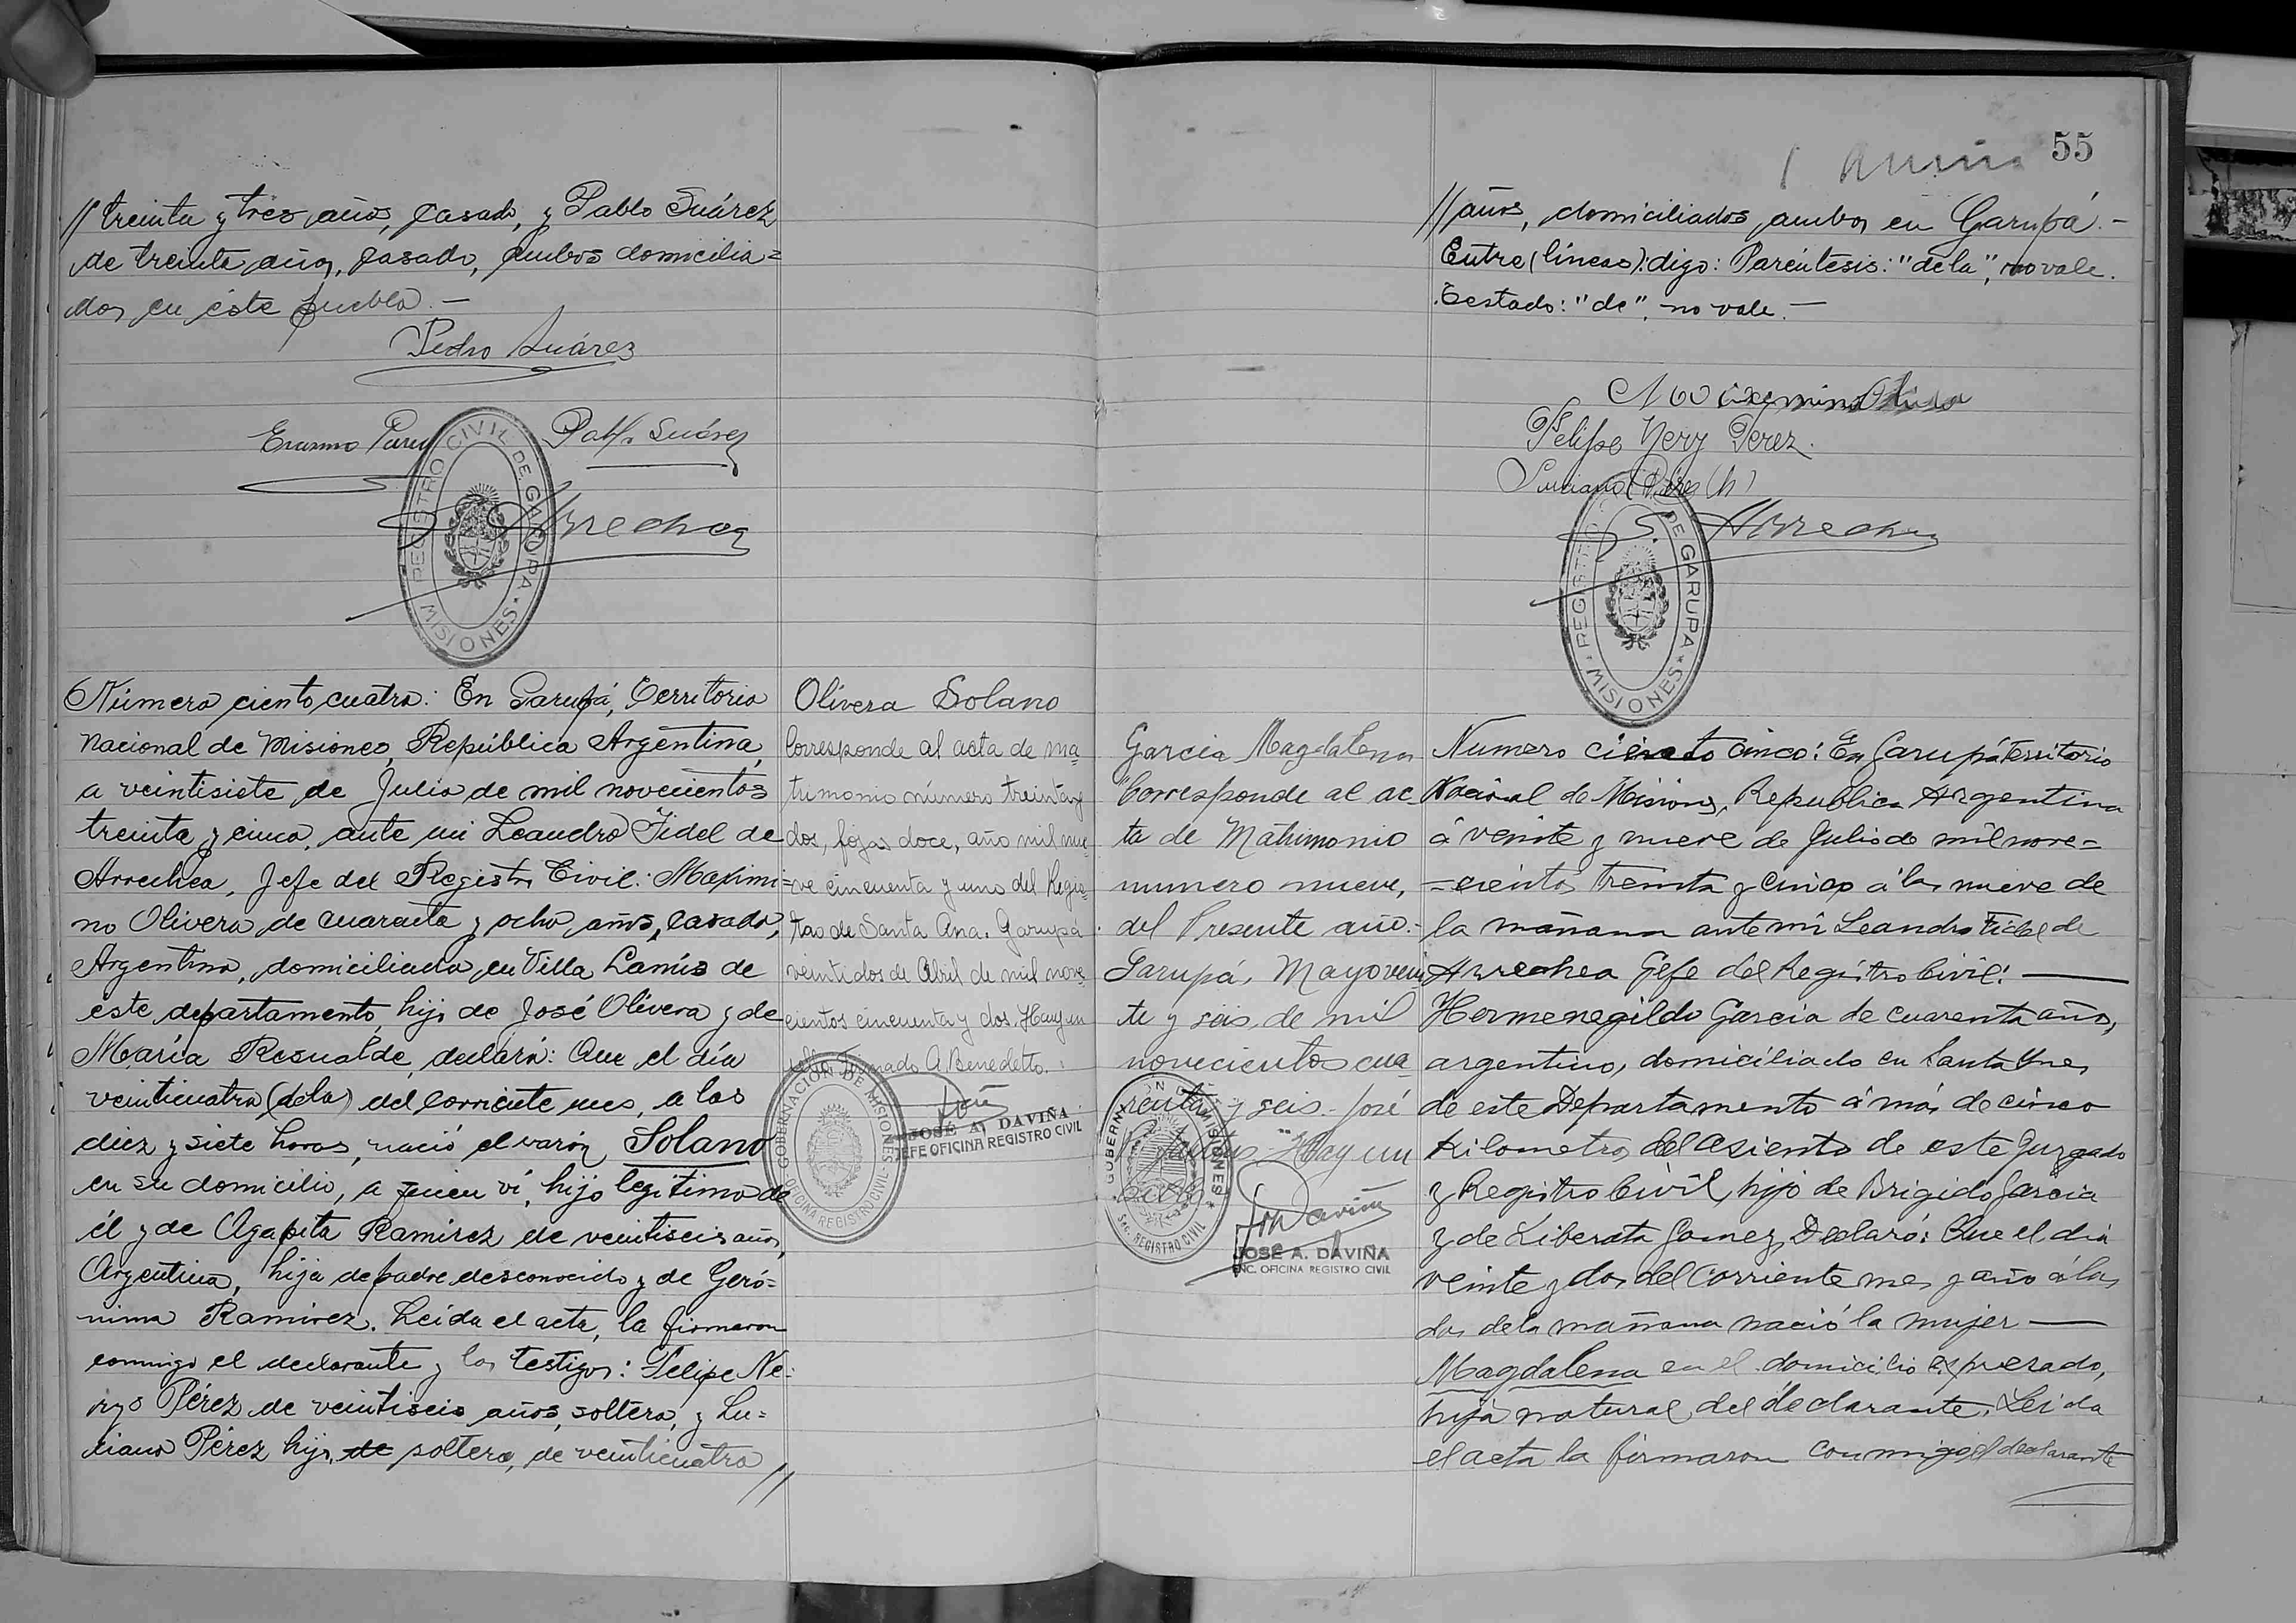 // treinta y tres años, casado, y Pablo Suárez
de treinta años, casado, ambos domicilia=
dos en éste pueblo.—
Pedro Suárez
Erasmo
Pablo Suárez
Arrechea
REGISTRO CIVIL DE GARUPA
MISIONES
Número ciento cuatro: En Garupá, Territorio
Nacional de Misiones, República Argentina,
a veintisiete de Julio de mil novecientos
treinta y cinco, ante mi Leandro Fidel de
Arrechea, Jefe del Registro Civil: Maximi=
no Olivera de cuarenta y ocho años, casado,
Argentino, domiciliado en Villa Lanús de
este departamento, hijo de José Olivera y de
María Resualde, declaró: Que el día
veinticuatro (de la) del corriente mes, a las
diez y siete horas, nació el varón Solano
en su domicilio, a quien ví, hijo legítimo de
él y de Agapita Ramírez de veintiseis años,
Argentina, hija de padre desconocido y de Geró=
nima Ramirez. Leída el acta, la firmaron
conmigo el declarante y los testigos: Felipe Ne=
rys Pérez de veintiseis años, soltero, y Lu=
ciano Pérez hijo, de soltero, de veinticuatro //
Olivera Solano
Corresponde al acta de ma=
trimonio número treinta y
dos, fojas doce, año mil nue=
ve cincuenta y uno del Regis=
tro de Santa Ana. Garupá
veintidos de Abril de mil nove=
cientos cincuenta y dos. Hay un
sello. Firmado A. Benedetto.
GOBERNACIÓN DE MISIONES
OFICINA REGISTRO CIVIL
JOSÉ A. DAVIÑA
JEFE OFICINA REGISTRO CIVIL
55
// años, domiciliados ambos en Garupá.—
Entre (líneas): digo: Paréntesis: "de la", no vale.
Testado: "de", no vale.—
Felipe Nery Perez.
Luciano Pérez (h)
S. Arrechea
REGISTRO DE GARUPA
MISIONES
Garcia Magdalena
"Corresponde al ac
ta de Matrimonio
numero nueve,
del Presente año.-
Garupá, Mayo vein
te y seis, de mil
novecientos cua=
renta y seis.- José
Hay un
sello
MISIONES
Sec. REGISTRO CIVIL
JOSÉ A. DAVIÑA
ENC. OFICINA REGISTRO CIVIL
Numero ciento cinco: En Garupá Territorio
Nacional de Misiones, Republica Argentina
á veinte y nueve de Julio de mil nove=
=cientos treinta y cinco á las nueve de
la mañana ante mi Leandro Fidel de
Arrechea Gefe del Registro Civil: —
Hermenegildo Garcia de cuarenta años,
argentino, domiciliado en Santa Ines,
de este Departamento á más de cinco
Kilometros del asiento de este Juzgado
y Registro Civil, hijo de Brigido Garcia
y de Liberata Gomez, Declaró: Que el dia
veinte y dos del corriente mes y año á las
dos de la mañana nació la mujer —
Magdalena en el domicilio expresado,
hija natural del declarante. Leida
el acta la firmaron conmigo el declarante